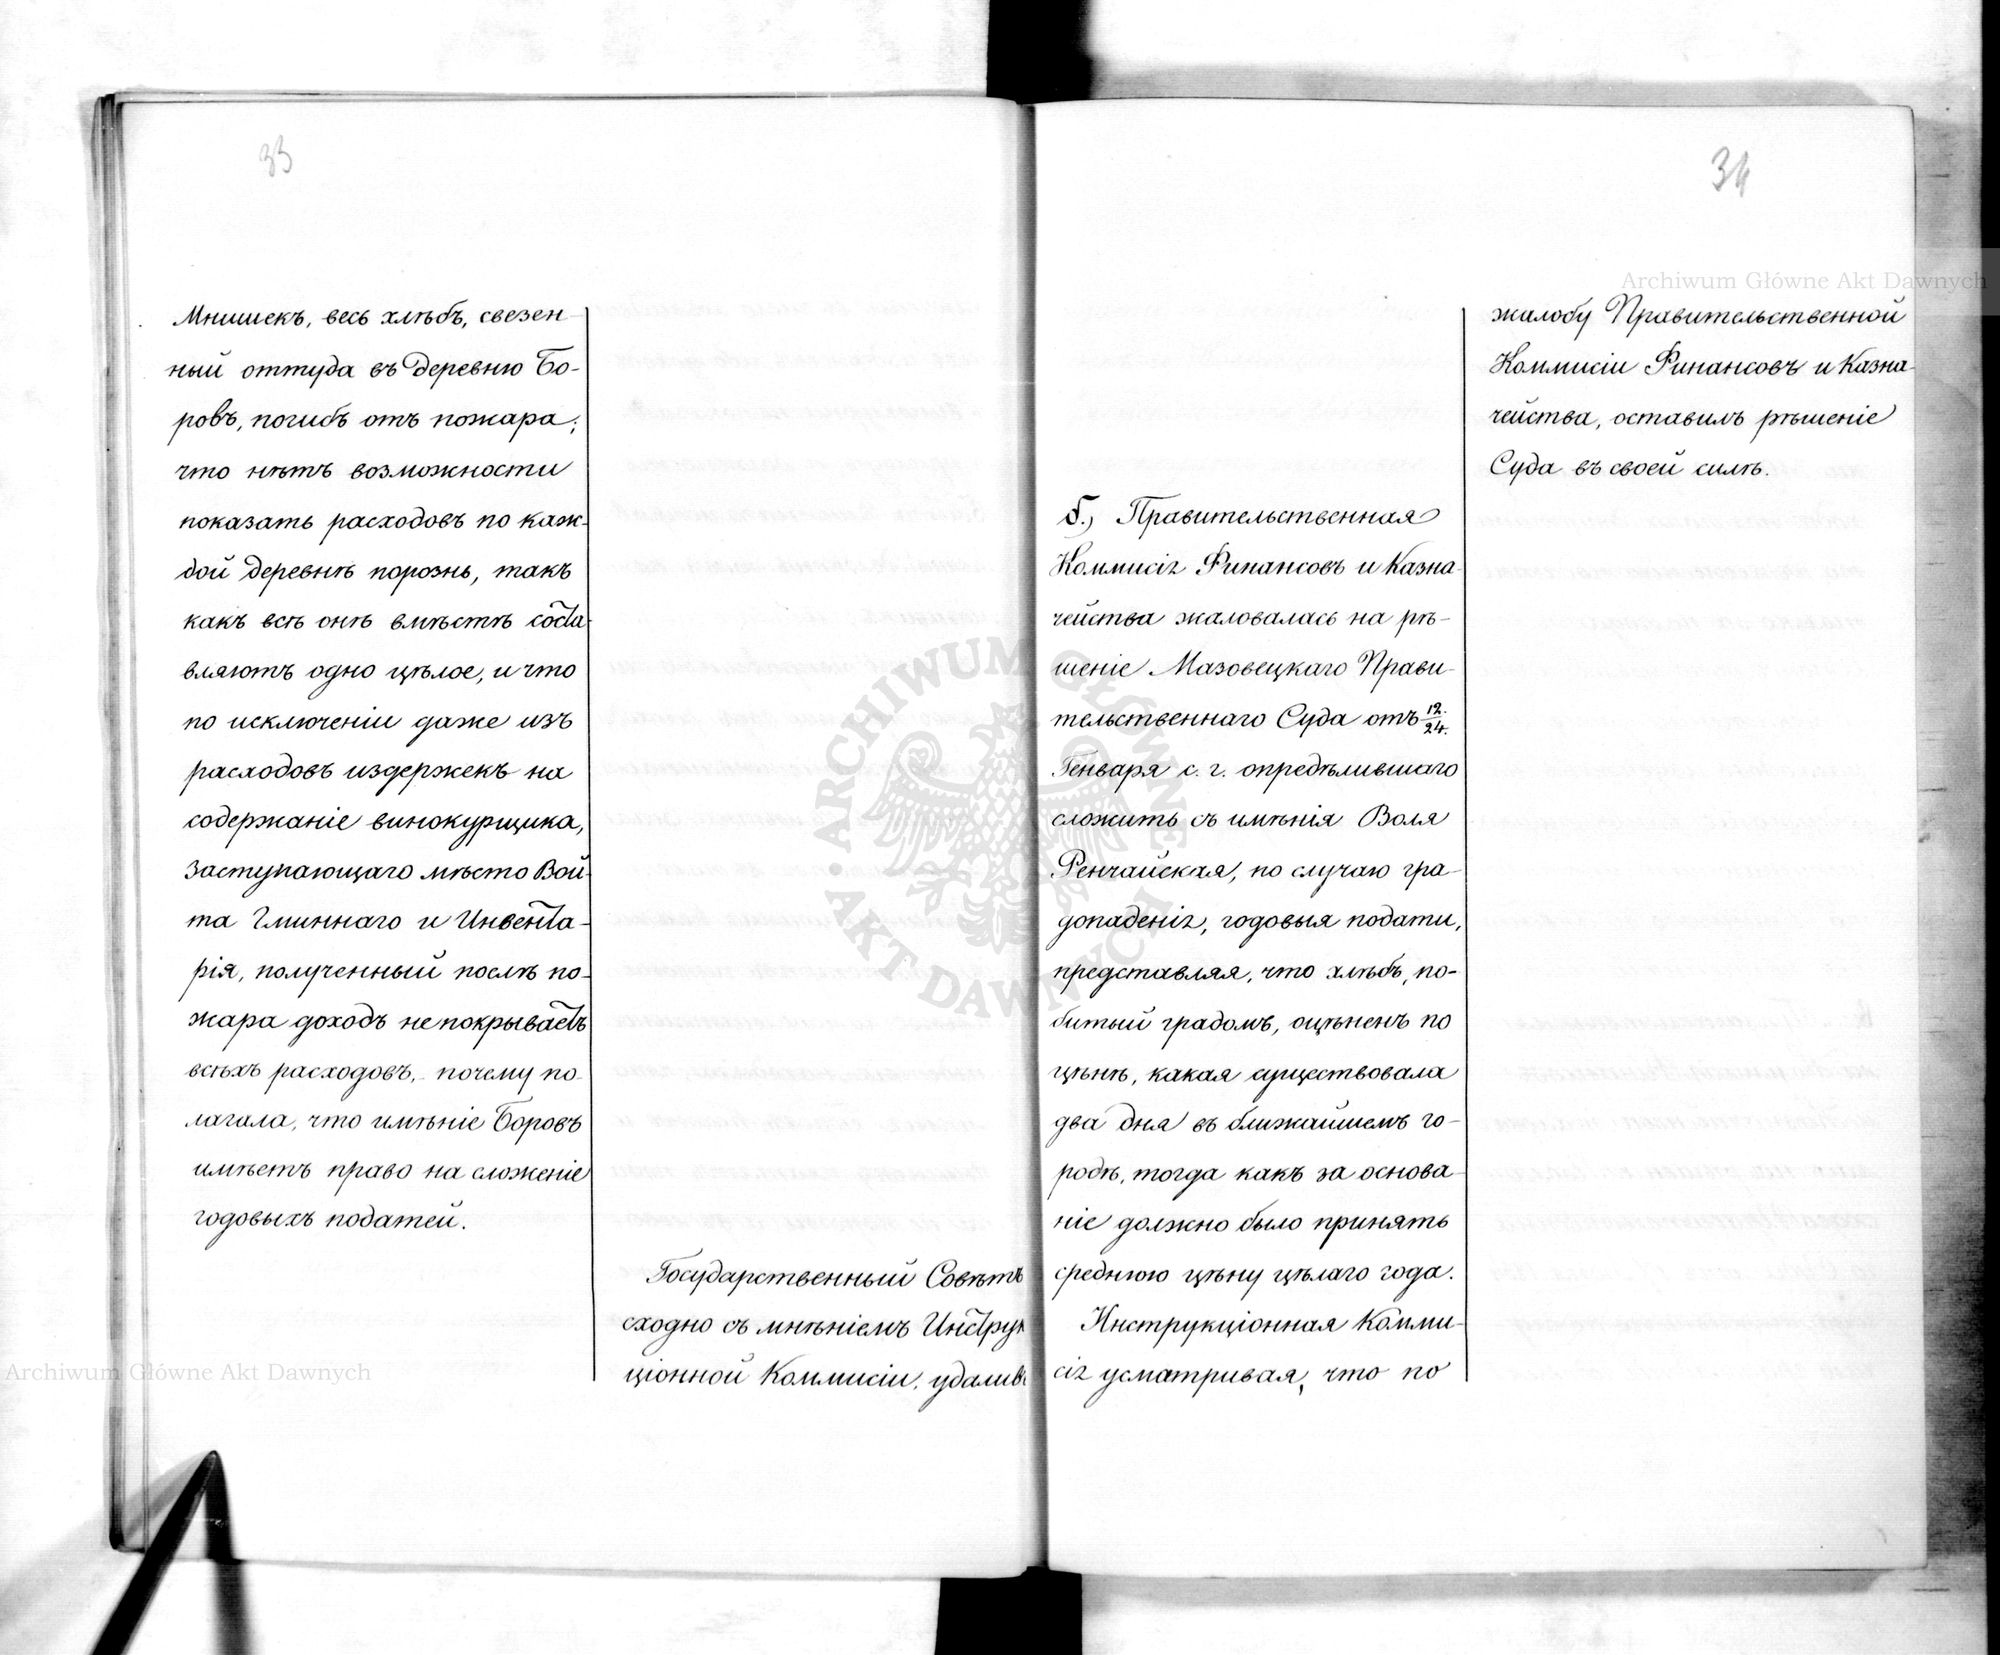 33
Мнишекъ, весь хлѣбъ, свезен-
ный оттуда въ деревню Бо-
ровъ, погибъ отъ пожара;
что нѣтъ возможности
показать расходовъ по каж-
дой деревнѣ порознь, такъ
какъ всѣ онѣ вмѣстѣ соста-
вляютъ одно цѣлое, и что
по исключеніи даже изъ
расходовъ издержекъ на
содержаніе винокурщика,
заступающаго мѣсто Вой-
та Гминнаго и Инвента-
рія, полученный послѣ по-
жара доходъ не покрываетъ
всѣхъ расходовъ, почему по-
лагала, что имѣніе Боровъ
имѣетъ право на сложеніе
годовыхъ податей.
Государственный Совѣтъ
сходно съ мнѣніемъ Инструк
ціонной Коммисіи, удаливъ
34
жалобу Правительственной
Коммисіи Финансовъ и Казна-
чейства, оставилъ рѣшеніе
Суда въ своей силѣ.
б.) Правительственная
Коммисія Финансовъ и Казна-
чейства жаловалась на рѣ-
шеніе Мазовецкаго Прави-
тельственнаго Суда отъ 12./24.
Генваря с. г. опредѣлившаго
сложить съ имѣнія Воля
Ренчайская, по случаю гра-
допаденія, годовыя подати,
представляя, что хлѣбъ, по-
битый градомъ, оцѣненъ по
цѣнѣ, какая существовала
два дня въ ближайшемъ го-
родѣ, тогда какъ за основа-
ніе должно было принять
среднюю цѣну цѣлаго года.
Инструкціонная Комми-
сія усматривая, что по
Archiwum Główne Akt Dawnych
Archiwum Główne Akt Dawnych
ARCHIWUM GŁÓWNE AKT DAWNYCH